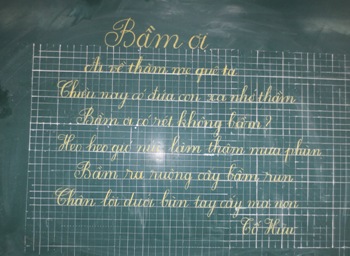 Bầm ơi
Ai về thăm mẹ quê ta
Chiều nay có đứa con xa nhớ thầm
Bầm ơi có rét không bầm?
Heo heo gió núi lâm thâm mưa phùn
Bầm ra ruộng cấy bầm run
Chân lội dưới bùn tay cấy mạ non
Tố Hữu